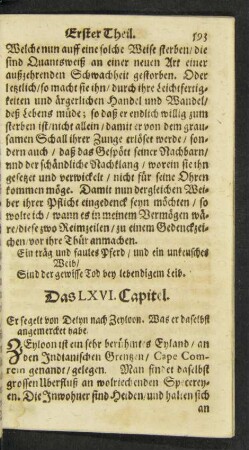 Erster Theil. 593
Welche nun auff eine solche Weise sterben/ die
sind Quantsweiß an einer neuen Art einer
außzehrenden Schwachheit gestorben. Oder
letzlich/ so macht sie ihn/ durch ihre Leichtfertig-
keiten und ärgerlichen Handel und Wandel/
deß Lebens müde; so daß er endlich willig zum
sterben ist/ nicht allein/ damit er von dem grau-
samen Schall ihrer Zunge erlöset werde/ son-
dern auch/ daß das Gespött seiner Nachbarn/
und der schändliche Nachklang/ worein sie ihn
gesetzet und verwickelt/ nicht für seine Ohren
kommen möge. Damit nun dergleichen Wei-
ber ihrer Pflicht eingedenck seyn möchten/ so
wolte ich/ wann es in meinem Vermögen wä-
re/ diese zwo Reimzeilen/ zu einem Gedenckzei-
chen/ vor ihre Thür anmachen.
Ein träg und faules Pferd/ und ein unkeusches
Weib/
Sind der gewisse Tod bey lebendigem Leib.
Das LXVI. Capitel.
Er segelt von Delyn nach Zeyloon. Was er daselbst
angemercket habe.
ZEyloon ist ein sehr berühmtes Eyland/ an
den Indianischen Grentzen/ Cape Com-
rein genandt/ gelegen. Man findet daselbst
grossen Uberfluß an wolriechenden Specerey-
en. Die Inwohner sind Heiden/ und halten sich
an